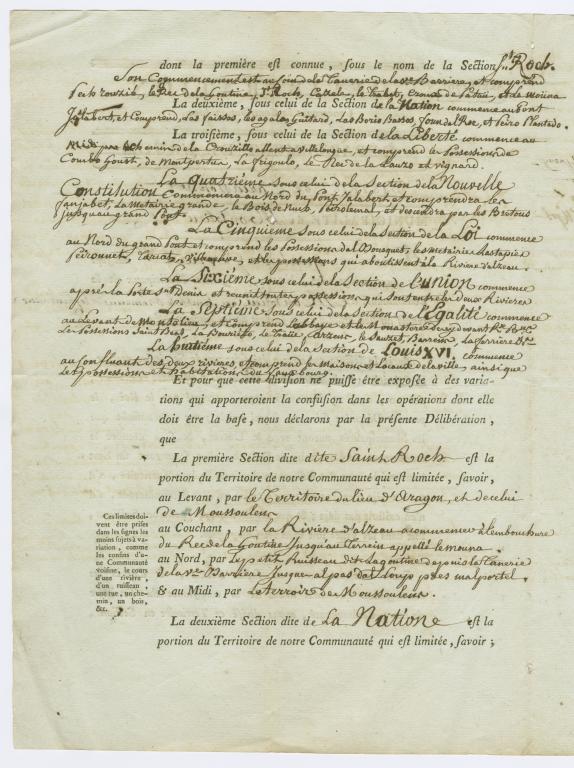 dont la première est connue, sous le nom de la Section St Roch.
Son Commencement est au foin de la Tanerie de la Ve Barriere, et comprend
le Rec de la Goutine, St Roch, Cazela, le Trabet, et de Mouna
La deuxième, sous celui de la Section de la Nation commence au Pont
Jalabert, et Comprend, Las faisses, les agals Guitard, Las Boris Basses, et Peiro Plantado.
La troisième, sous celui de la Section de la Liberté commence au
Midi par le chemin de la allant a villelongue, et comprend les Possessions de
Combo Goust, de Montpertus, La Grigoulo, Le Rec de la Lauzo et vignard.
La quatrième sous celui de la Section de la Nouvelle
Constitution Commencera au Nord du Pont Jalabert, et comprendra le
Janjabet, La Metairie grande, le Bois de et descendra par les
jusqu'au grand Pont.
La Cinquieme sous celui de la Section de la Loi commence
au Nord du grand Pont et comprend les Possessions dal Bousquet, les metairies Lastapies
Peironnet, et les possessions qui aboutissent à la Riviere d'alzeau.
La Sixième sous celui de la Section de l'union commence
après la Porte St Denis et reunit toutes possessions qui sont entre les deux Rivieres
La Septieme sous celui de la Section de l'Egalité commence
au Levant de Montolieu, et Comprend L'abbaye et le Monastere
Les Possessions Saint Beat, La Bouriette, Le Sauzet, Barrera, La ferriere &c
La huitieme sous celui de la Section de Louis XVI, commence
au Confluant des deux rivieres, et comprend les maisons et Locaux de la ville, ainsi que
Les possessions et habitations du Fauxbourg.
Et pour que cette division ne puisse être exposée à des varia-
tions qui apporteroient la confusion dans les opérations dont elle
doit être la base, nous déclarons par la présente Délibération,
que
La première Section dite dite Saint Roch est la
portion du Territoire de notre Communauté qui est limitée, savoir,
au Levant, par le Territoire du lieu d'Aragon, et de celui
de Moussoulens
au Couchant, par la Riviere d'alzeau a commencer à l'embouchure
du Rec de la Goutine Jusqu'au Terrein appellé lemouna.
au Nord, par Le petit Ruisseau dit La goutine depuis la Tanerie
de la Ve Barriere Jusque al pas dal Loup près malportel.
& au Midi, par Le terroir de Moussoulens.
Ces limites doi-
vent être prises
dans les signes les
moins sujets à va-
riation, comme
les confins d'u-
ne Communauté
voisine, le cours
d'une rivière,
d'un ruisseau,
une rue, un che-
min, un bois,
&c.
La deuxième Section dite de La Natione est la
portion du Territoire de notre Communauté qui est limitée, savoir;